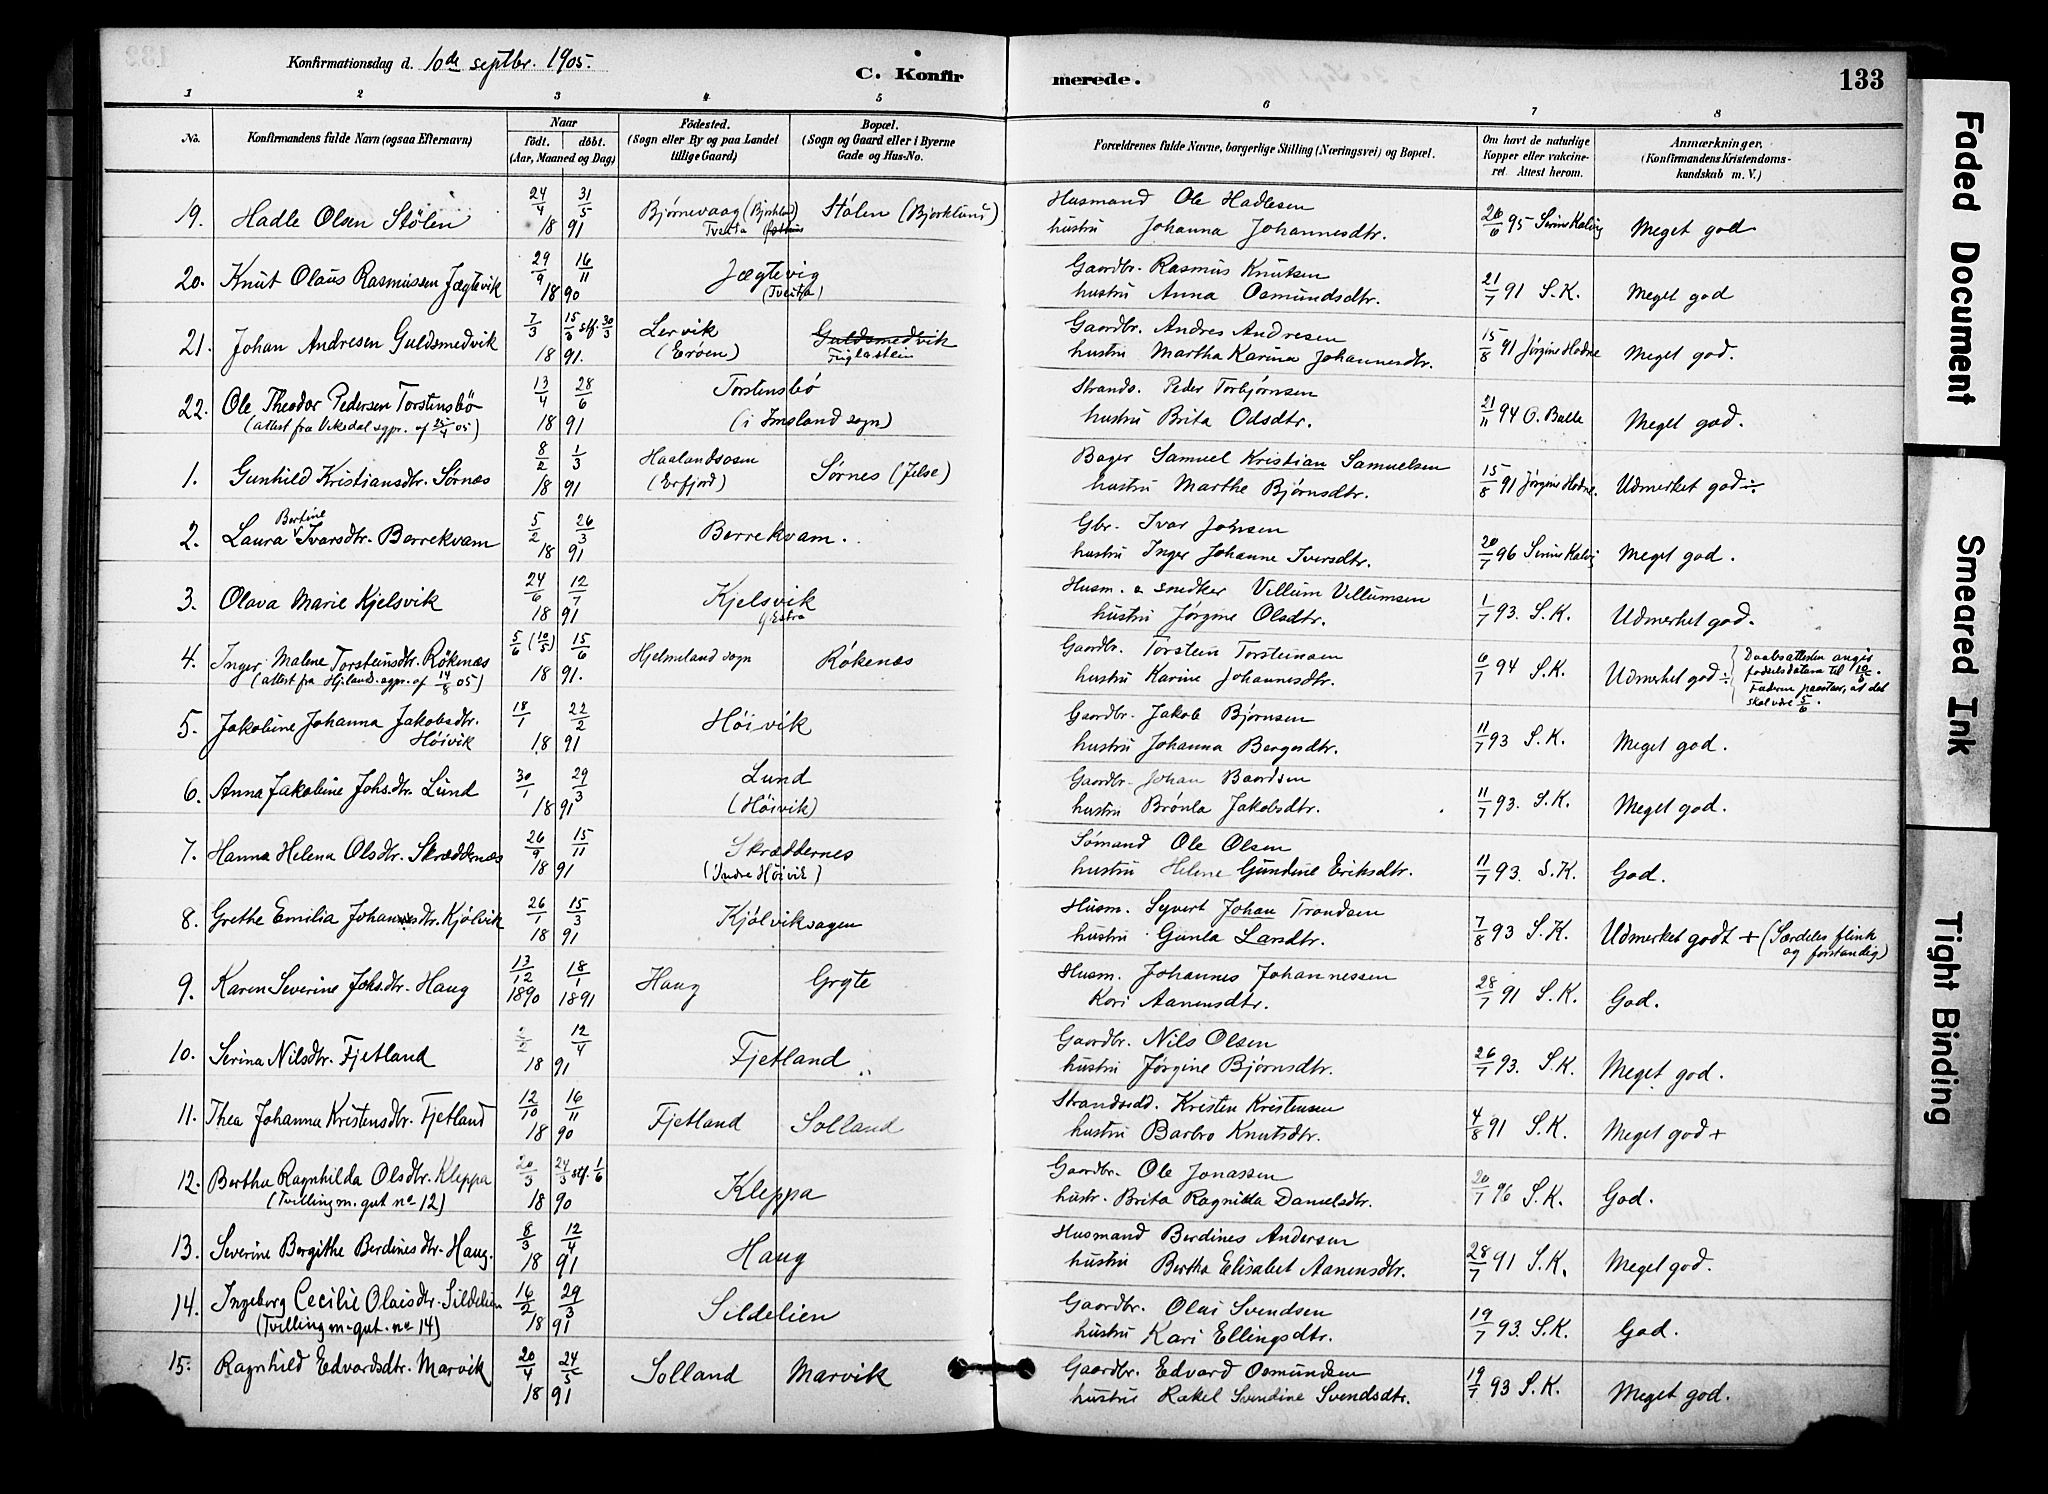 Konfirmationsdag d. 10de septbr. 1905.
C. Konfirmerede.
133
1 2 3 4 5 6 7 8
No.
Konfirmandens fulde Navn (ogsaa Efternavn)
Naar
født. døbt.
(Aar, Maaned og Dag)
Fødested.
(Sogn eller By og paa Landet
tillige Gaard)
Bopæl.
(Sogn og Gaard eller i Byerne
Gade og Hus-No.
Forældrenes fulde Navne, borgerlige Stilling (Næringsvei) og Bopæl.
Om havt de naturlige
Kopper eller vakcine-
ret. Attest herom.
Anmærkninger,
(Konfirmandens Kristendoms-
kundskab m. V.)
19. Hadle Olsen Stølen 24/4 31/5 1891 Bjørnevaag Tveita Stølen (Bjørklund) Husmand Ole Hadlesen
hustru Johanna Johannesdtr. 26/6 95 Meget god
20. Knut Olaus Rasmussen Jægtevik 29/9 16/11 1890 Jægtevig (Tveita) Gaardbr. Rasmus Knutsen
hustru Anna Osmundsdtr. 21/7 91 S.K. Meget god
21. Johan Andresen Guldsmedvik 7/3 15/3 stf. 30/3 1891. Lervik (Erøen) Guldsmedvik Fuglastein Gaardbr. Andres Andresen
hustru Martha Karina Johannesdtr. 15/8 91 Jørgine Hodne Meget god.
22. Ole Theodor Pedersen Torstensbø 13/4 28/6 1891 Torstensbø (i Imsland sogn) Strands. Peder Torbjørnsen
(attest fra Vikedal sgpr. af 25/4 05) hustru Brita Odsdtr. 21/11 94 O. Balle Meget god.
1. Gunhild Kristiansdtr. Sørnes 8/2 1/3 1891 Haalandsosen (Erfjord) Sørnes (Jelse) Bager Samuel Kristian Samuelsen
hustru Marthe Bjørnsdtr. 15/8 91 Jørgine Hodne. Udmerket god ÷
2. Laura Bertine Ivarsdtr. Borrekvam 5/2 26/3 1891 Borrekvam. Gbr. Ivar Johsen
hustru Inger Johanne Iversdtr. 20/7 96 Meget god.
3. Olava Marie Kjelsvik 24/6 12/7 1891 Kjelsvik Husm. & snedker Villum Villumsen
hustru Jørgine Olsdtr. 1/7 93. S.K. Udmerket god.
4. Inger Malene Torsteinsdtr. Røkenæs 5/6 (10/5) 15/6 1891. Hjelmeland sogn Røkenæs Gaardbr. Torstein Torsteinsen
(attest fra Hj.land. sgpr. af 14/8 05) hustru Karine Johannesdtr. 6/7 94 S.K. Udmerket god ÷
Daabsattesten angir
fødselsdatum til 10/5.
Faderen paastaar, at det
skal være 5/6.
5. Jakobine Johanna Jakobsdtr. Høivik 18/1 22/2 1891 Høivik Gaardbr. Jakob Bjørnsen
hustru Johanna Bergesdtr. 11/7 93 S.K. Meget god.
6. Anna Jakobine Johsdtr. Lund 30/1 29/3 1891 Lund (Høivik) Gaardbr. Johan Baardsen
hustru Brønla Jakobsdtr. 11/7 93. S.K. Meget god.
7. Hanna Helena Olsdtr. Skræddernæs 26/9 15/11 1891 Skræddernes (Indre Høivik) Sømand Ole Olsen
hustru Helene Gundine Eriksdtr. 11/7 93. S.K. God.
8. Grethe Emilia Johannesdtr. Kjølvik 26/1 15/3 1891 Kjølviksvagen Husm. Syvert Johan Trondsen
hustru Gunla Larsdtr. 7/8 93 S.K. Udmerket godt + (Særdeles flink
og forstandig)
9. Karen Severine Johsdtr. Haug 13/12 1890 18/1 1891 Haug Grgte Husm. Johannes Johannessen
Kari Aanensdtr. 28/7 91 S.K. God.
10. Serina Nilsdtr. Fjetland 12/4 1891 Fjetland Gaardbr. Nils Olsen
hustru Jørgine Bjørnsdtr. 26/7 93. S.K. Meget god.
11. Thea Johanna Kristensdtr. Fjetland 12/10 16/11 1890 Fjetland Solland Strandsidd. Kristen Kristensen
hustru Barbro Knutsdtr. 4/8 91 S.K. Meget god +
12. Bertha Ragnhilda Olsdtr. Kleppa 20/3 24/3 stf. 1/6 1890 Kleppa Gaardbr. Ole Jonassen
(Tvilling m. gut no 12) hustr. Brita Ragnilda Danielsdtr. 20/7 96 S.K. God.
13. Severine Bergithe Berdinesdtr. Haug. 8/3 12/4 1891 Haug Husmand Berdines Andersen
hustru Bertha Elisabet Aanensdtr. 28/7 91 S.K. Meget god.
14. Ingeborg Cecilie Olaisdtr. Sildelien 16/2 29/3 1891 Sildelien Gaardbr. Olai Svendsen
(Tvilling m. gut. no 14) hustru Kari Ellingsdtr. 19/7 93. S.K. God.
15. Ragnhild Edvardsdtr. Marvik 20/4 24/5 1891 Solland Marvik Gaardbr. Edvard Osmundsen
hustru Rakel Svendine Svendsdtr. 19/7 93 S.K. Meget god.
Faded Document
Smeared Ink
Tight Binding